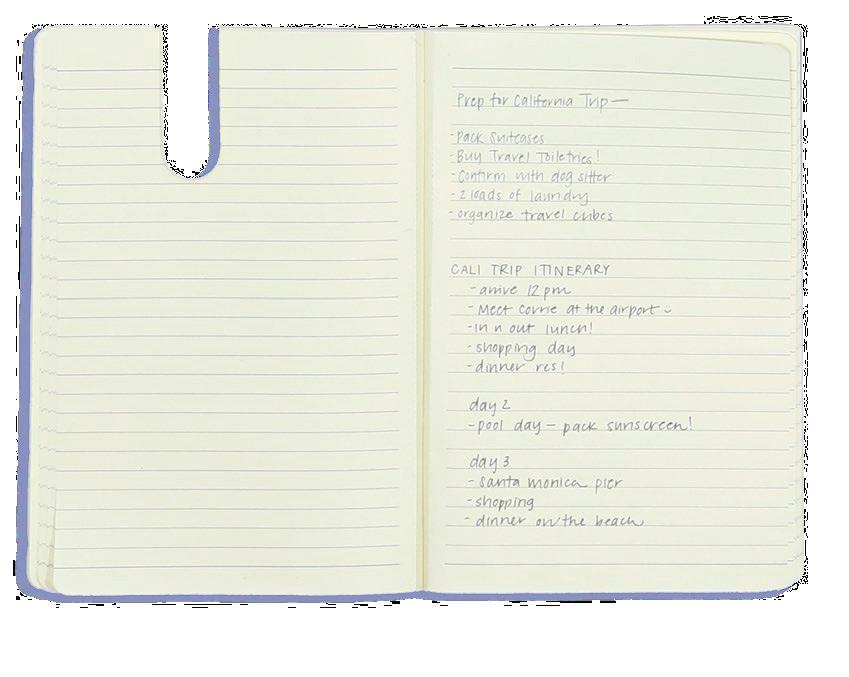 Prep for California Trip—
-Pack Suitcases
-Buy Travel Toiletries!
-Confirm with dog sitter
-2 loads of laundry
-organize travel cubes
CALI TRIP ITINERARY
-arrive 12pm
-Meet Corrie at the airport
-in n out lunch!
-shopping day
-dinner res!
day 2
-pool day — pack sunscreen!
day 3
-santa monica pier
-shopping
-dinner on the beach